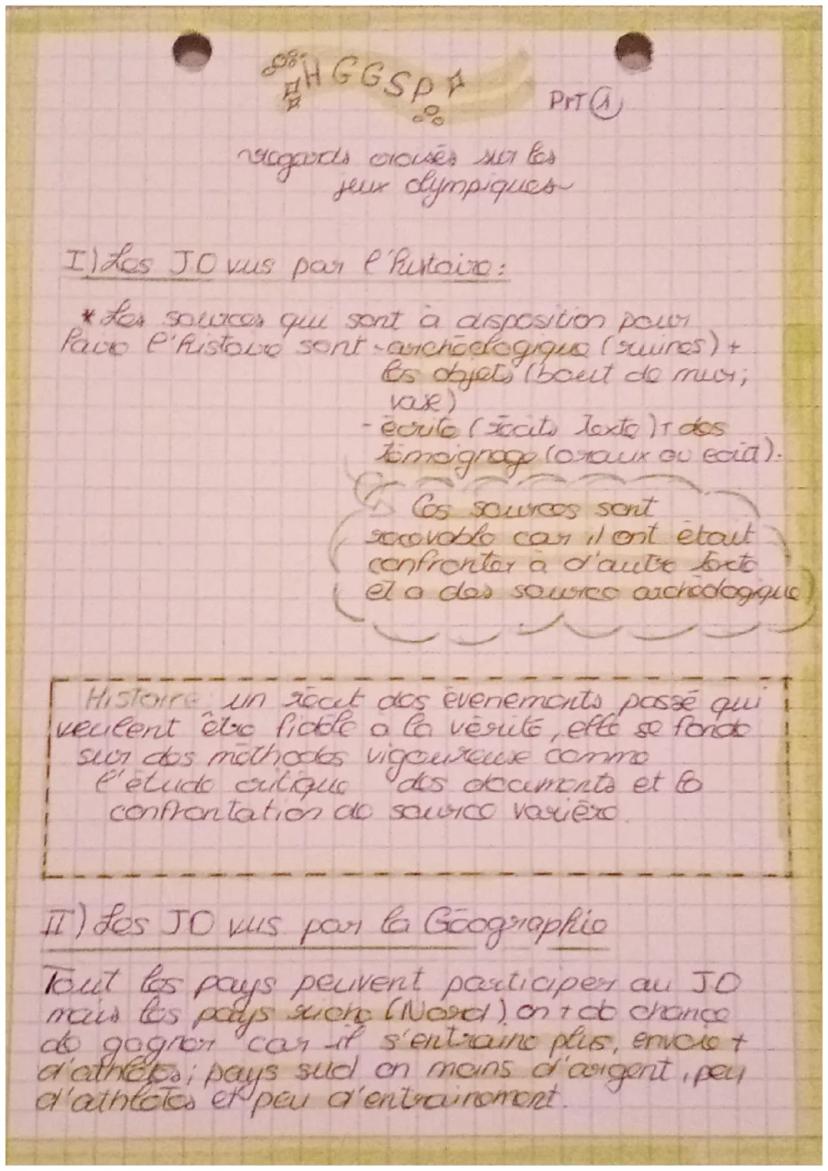 HGGSP
PrT ①
regards croisés sur les
jeux olympiques
I) Les JO vus par l'histoire :
* Les sources qui sont à disposition pour
faire l'histoire sont - archéologique (ruines) +
les objets (bout de mur,
vase)
- écrite (récits texte) + des
témoignage (oraux ou écrit).
Ces sources sont
recevable car il ont étaut
confronter à d'autre texte
et a des source archéologique
Histoire : un récit des évenements passé qui
veulent être fidèle à la vérité, elle se fonde
sur des méthodes vigoureuse comme
l'étude critique des documents et la
confrontation de source variére.
II) Les JO vus par la Géographie
Tout les pays peuvent participer au JO
mais les pays riche (Nord) on + de chance
de gagner car il s'entraine plus, envoie +
d'athlètes ; pays sud on moins d'argent, peu
d'athlètes et peu d'entrainement.